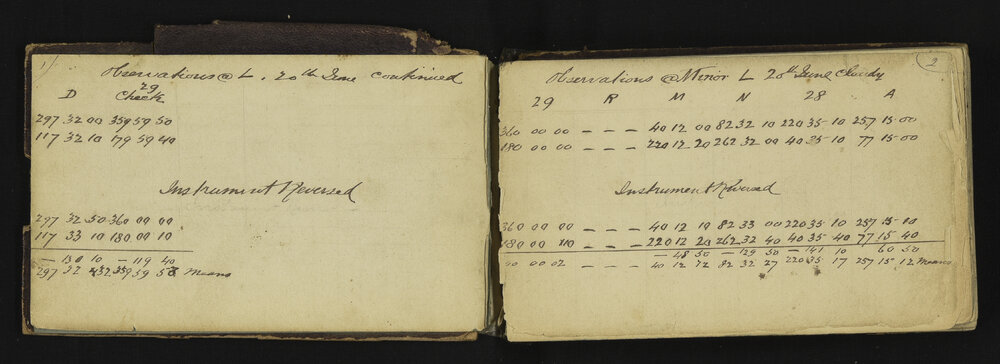 1)
Observations @ L. 20th June continued
D 29
Check
297 32 00 359 59 50
117 32 10 179 59 40
Instrument Reversed
297 32 50 360 00 00
117 33 10 180 00 10
— 130 10 — 119 40
297 32 32 359 59 55 Means
2
Observations @ Minor L 20th June Cloudy
29 R M N 28 A
360 00 00 — — — 40 12 00 82 32 10 220 35 10 257 15 00
180 00 00 — — — 220 12 20 262 32 00 40 35 10 77 15 00
Instrument Reversed
360 00 00 — — — 40 12 10 82 33 00 220 35 10 257 15 10
180 00 10 — — — 220 12 20 262 32 40 40 35 40 77 15 40
— 48 50 — 129 50 — 141 10 60 50
00 02 — — — 40 12 12 82 32 27 220 35 17 257 15 12 Means